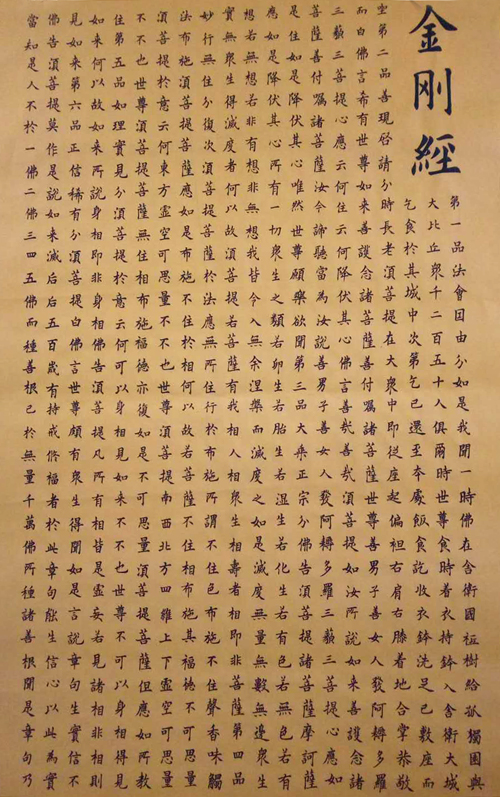 金剛經
第一品法會因由分如是我聞一時佛在舍衛國祗樹給孤獨園與
大比丘眾千二百五十人俱爾時世尊食時着衣持鉢入舍衛大城
乞食於其城中次第乞已還至本處飯食訖收衣鉢洗足已敷座而
坐第二品善現啟請分時長老須菩提在大眾中即從座起偏袒右肩右膝着地合掌恭敬
而白佛言希有世尊如來善護念諸菩薩善付囑諸菩薩世尊善男子善女人發阿耨多羅
三藐三菩提心應云何住云何降伏其心佛言善哉善哉須菩提如汝所說如來善護念諸
菩薩善付囑諸菩薩汝今諦聽當為汝說善男子善女人發阿耨多羅三藐三菩提心應如
是住如是降伏其心唯然世尊願樂欲聞第三品大乘正宗分佛告須菩提諸菩薩摩訶薩
應如是降伏其心所有一切眾生之類若卵生若胎生若濕生若化生若有色若無色若有
想若無想若非有想非無想我皆令入無余涅槃而滅度之如是滅度無量無數無邊眾生
實無眾生得滅度者何以故須菩提若菩薩有我相人相眾生相壽者相即非菩薩第四品
妙行無住分復次須菩提菩薩於法應無所住行於布施所謂不住色布施不住聲香味觸
法布施須菩提菩薩應如是布施不住於相何以故若菩薩不住相布施其福德不可思量
須菩提於意云何東方虛空可思量不不也世尊須菩提南西北方四維上下虛空可思量
不不也世尊須菩提菩薩無住相布施福德亦復如是不可思量須菩提菩薩但應如所教
住第五品如理實見分須菩提於意云何可以身相見如來不不也世尊不可以身相得見
如來何以故如來所說身相即非身相佛告須菩提凡所有相皆是虛妄若見諸相非相則
見如來第六品正信稀有分須菩提白佛言世尊頗有眾生得聞如是言說章句生實信不
佛告須菩提莫作是說如來滅后后五百歲有持戒修福者於此章句能生信心以此為實
當知是人不於一佛二佛三四五佛而種善根已於無量千萬佛所種諸善根聞是章句乃